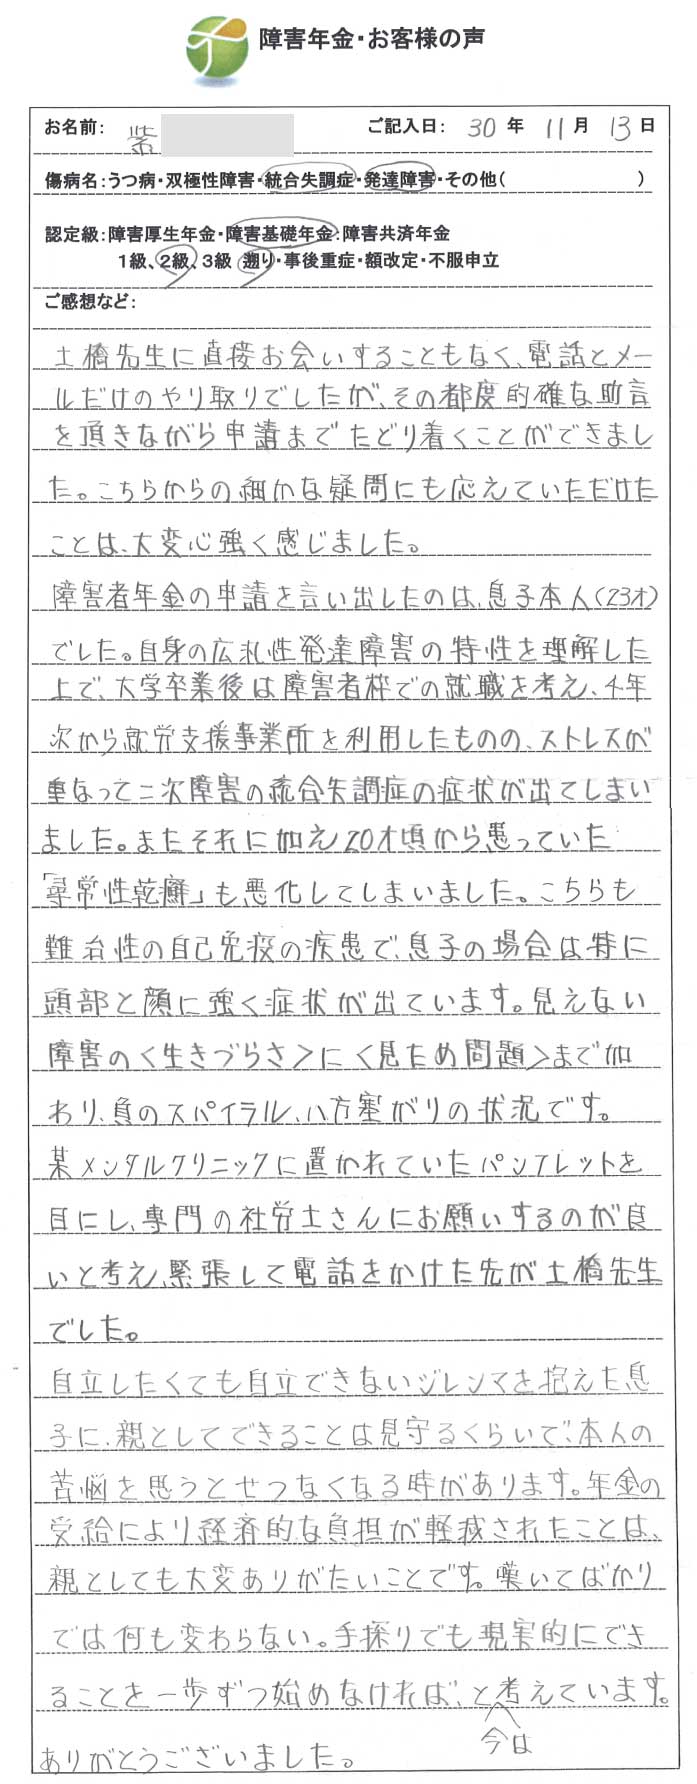 障害年金・お客様の声
お名前: 紫 ご記入日: 30 年 11 月 13 日
傷病名:うつ病・双極性障害・統合失調症・発達障害・その他( )
認定級:障害厚生年金・障害基礎年金・障害共済年金
1級、2級、3級 遡り・事後重症・額改定・不服申立
ご感想など:
土橋先生に直接お会いすることもなく、電話とメー
ルだけのやり取りでしたが、その都度的確な助言
を頂きながら申請までたどり着くことができまし
た。こちらからの細かな疑問にも応えていただけた
ことは、大変心強く感じました。
障害者年金の申請を言い出したのは、息子本人(23才)
でした。自身の広汎性発達障害の特性を理解した
上で、大学卒業後は障害者枠での就職を考え、4年
次から就労支援事業所を利用したものの、ストレスが
重なって二次障害の統合失調症の症状が出てしまい
ました。またそれに加え20才頃から患っていた
「尋常性乾癬」も悪化してしまいました。こちらも
難治性の自己免疫の疾患で、息子の場合は特に
頭部と顔に強く症状が出ています。見えない
障害の〈生きづらさ〉に〈見ため問題〉まで加
わり、負のスパイラル、八方塞がりの状況です。
某メンタルクリニックに置かれていたパンフレットを
目にし、専門の社労士さんにお願いするのが良
いと考え、緊張して電話をかけた先が土橋先生
でした。
自立したくても自立できないジレンマを抱えた息
子に、親としてできることは見守るくらいで、本人の
苦悩を思うとせつなくなる時があります。年金の
受給により経済的な負担が軽減されたことは、
親としても大変ありがたいことです。嘆いてばかり
では何も変わらない。手探りでも現実的にでき
ることを一歩ずつ始めなければ、と考えています。
今は
ありがとうございました。